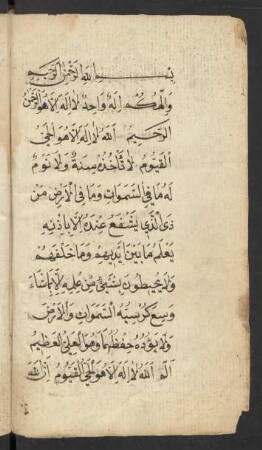 بسم الله الرحمن الرحيم
وَاِلٰهُكُمْ اِلٰهٌ وَاحِدٌ لَا اِلٰهَ اِلَّا هُوَ الرَّحْمٰنُ
الرَّحِيمُ اَللّٰهُ لَا اِلٰهَ اِلَّا هُوَ الْحَيُّ
الْقَيُّومُ لَا تَأْخُذُهُ سِنَةٌ وَلَا نَوْمٌ
لَهُ مَا فِي السَّمٰوَاتِ وَمَا فِي الْاَرْضِ مَنْ
ذَا الَّذِي يَشْفَعُ عِنْدَهُ اِلَّا بِاِذْنِهِ
يَعْلَمُ مَا بَيْنَ اَيْدِيهِمْ وَمَا خَلْفَهُمْ
وَلَا يُحِيطُونَ بِشَيْءٍ مِنْ عِلْمِهِ اِلَّا بِمَا شَاءَ
وَسِعَ كُرْسِيُّهُ السَّمٰوَاتِ وَالْاَرْضَ
وَلَا يَؤُدُهُ حِفْظُهُمَا وَهُوَ الْعَلِيُّ الْعَظِيمُ
الٓمٓ اَللّٰهُ لَا اِلٰهَ اِلَّا هُوَ الْحَيُّ الْقَيُّومُ اِنَّ اللّٰهَ